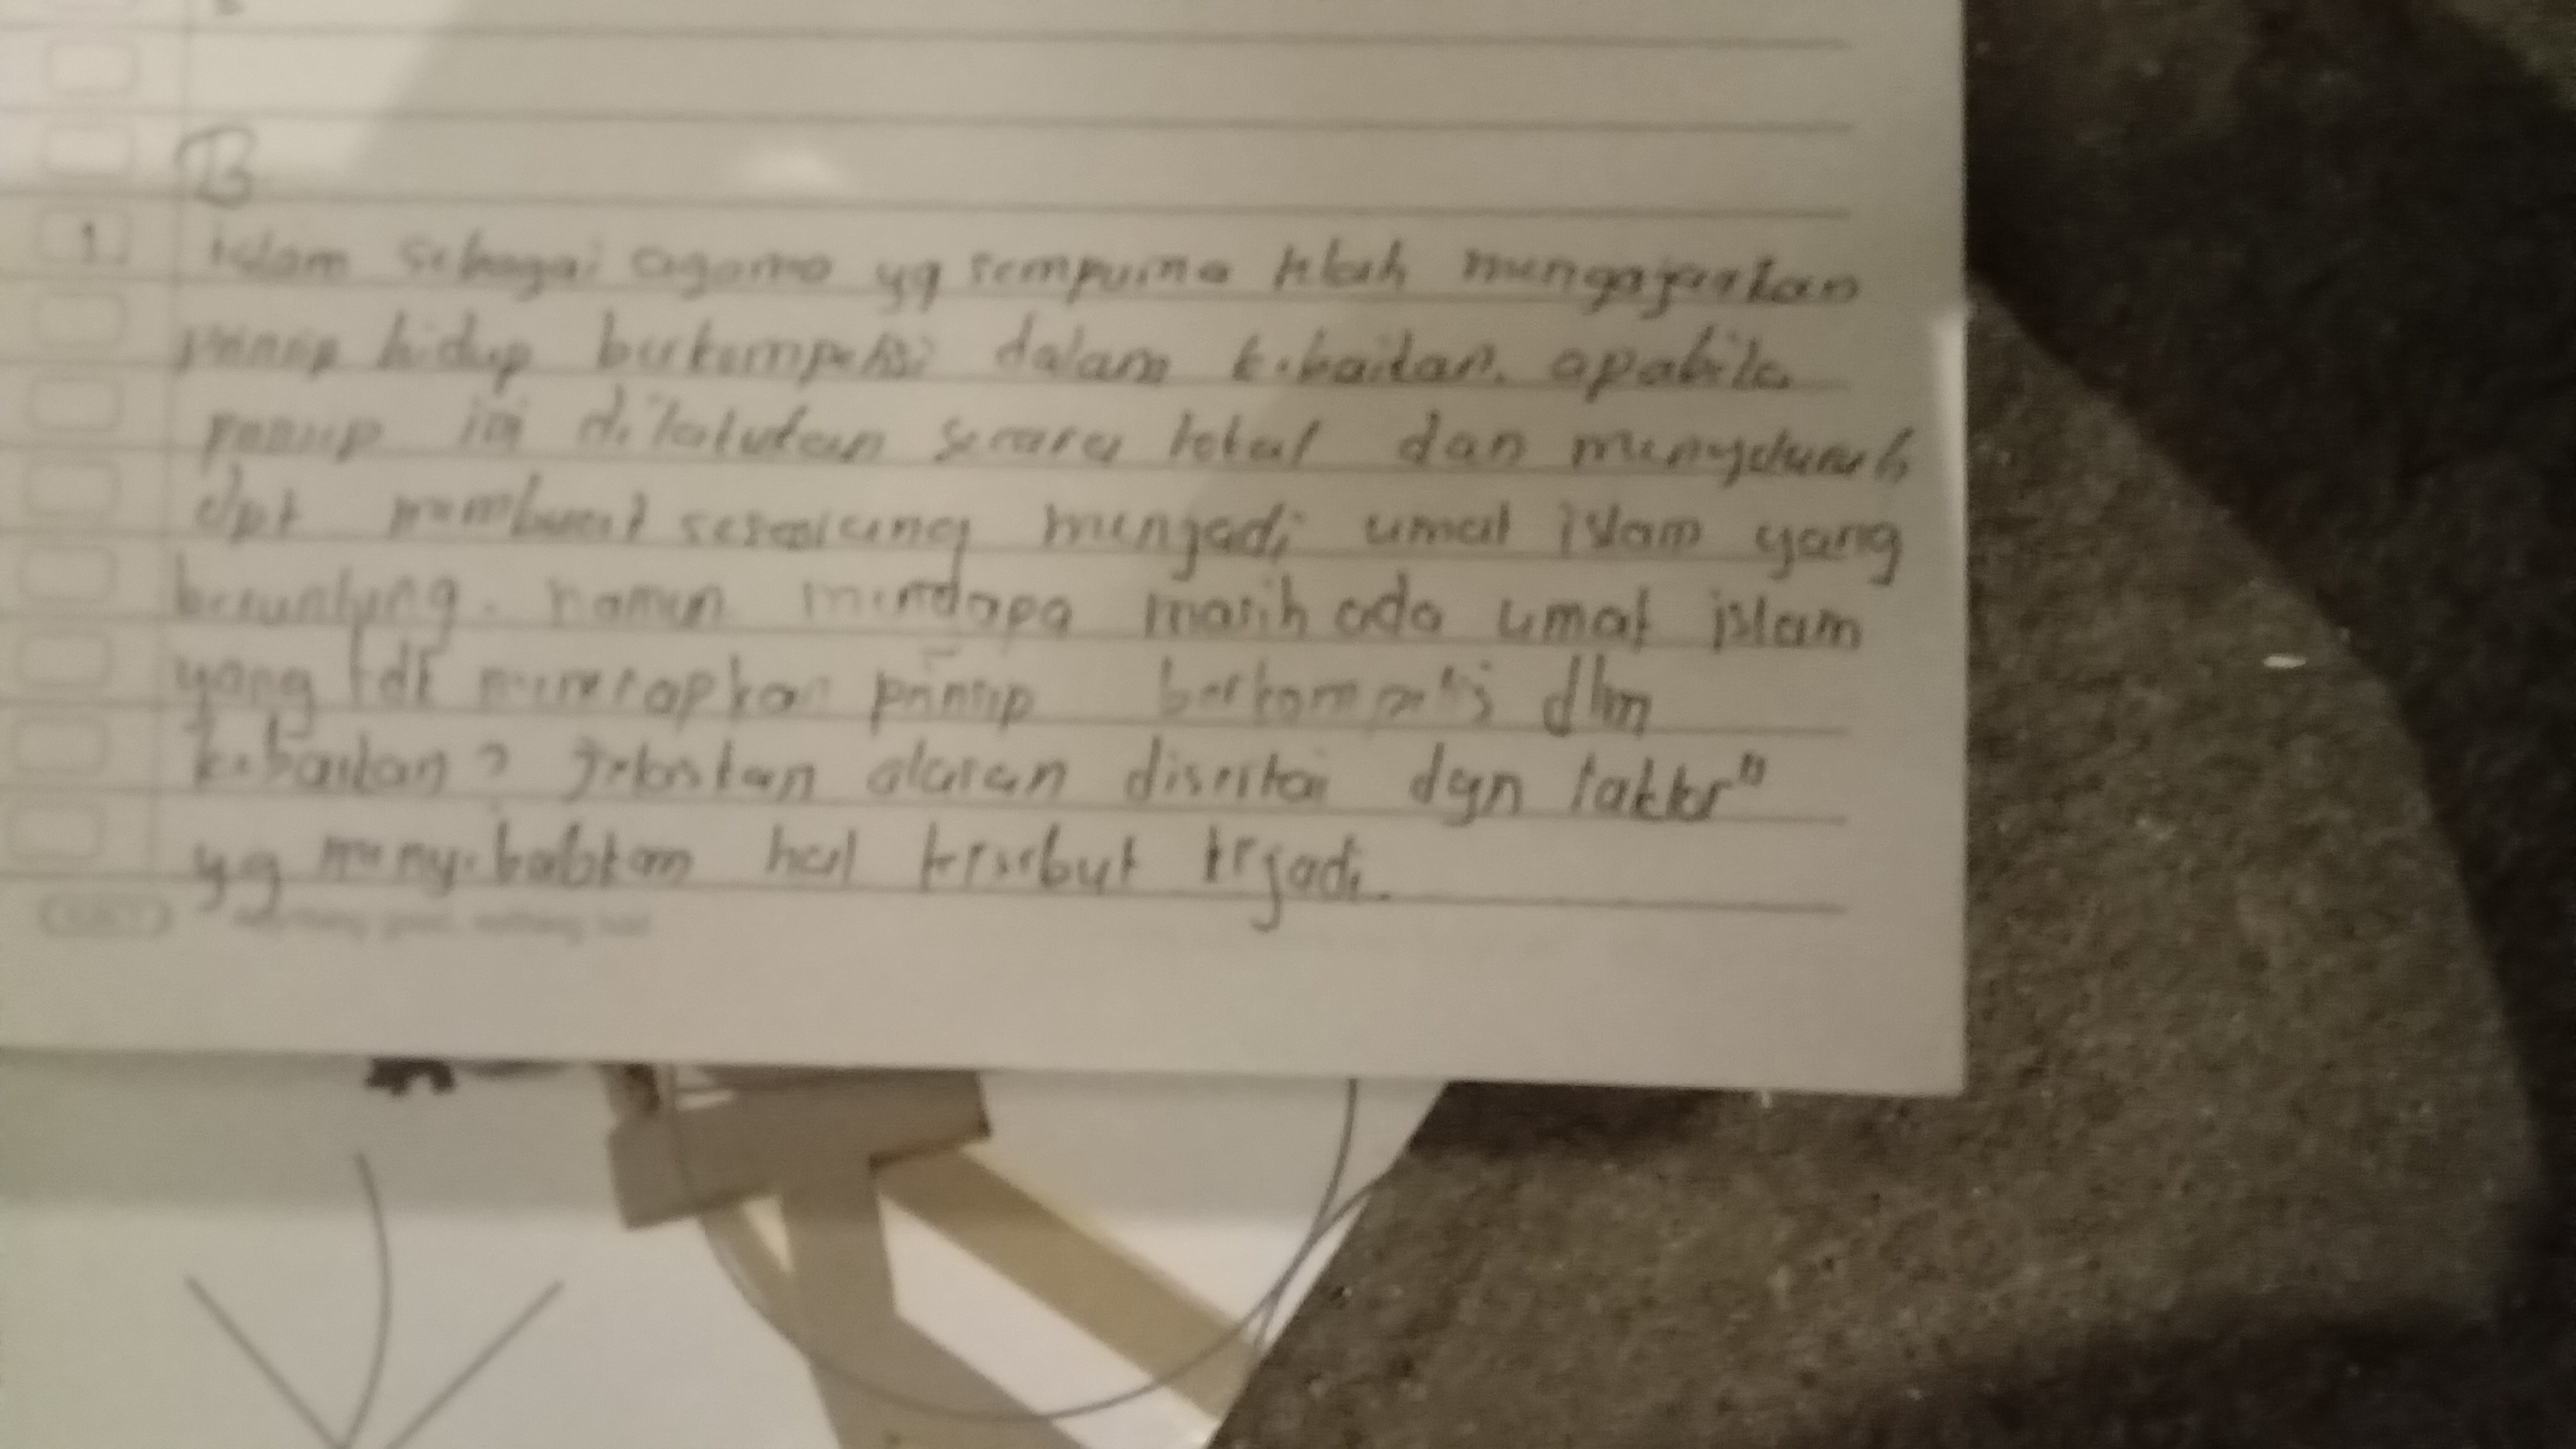 B
1 Islam sebagai agama yg sempurna telah mengajarkan
prinsip hidup berkompetisi dalam kebaikan. apabila
prinsip ini dilakukan secara total dan menyeluruh
dpt membuat seseorang menjadi umat islam yang
beruntung. namun mengapa masih ada umat islam
yang tdk menerapkan prinsip berkompetisi dlm
kebaikan? Jelaskan alasan disertai dgn faktor"
yg menyebabkan hal tersebut terjadi.